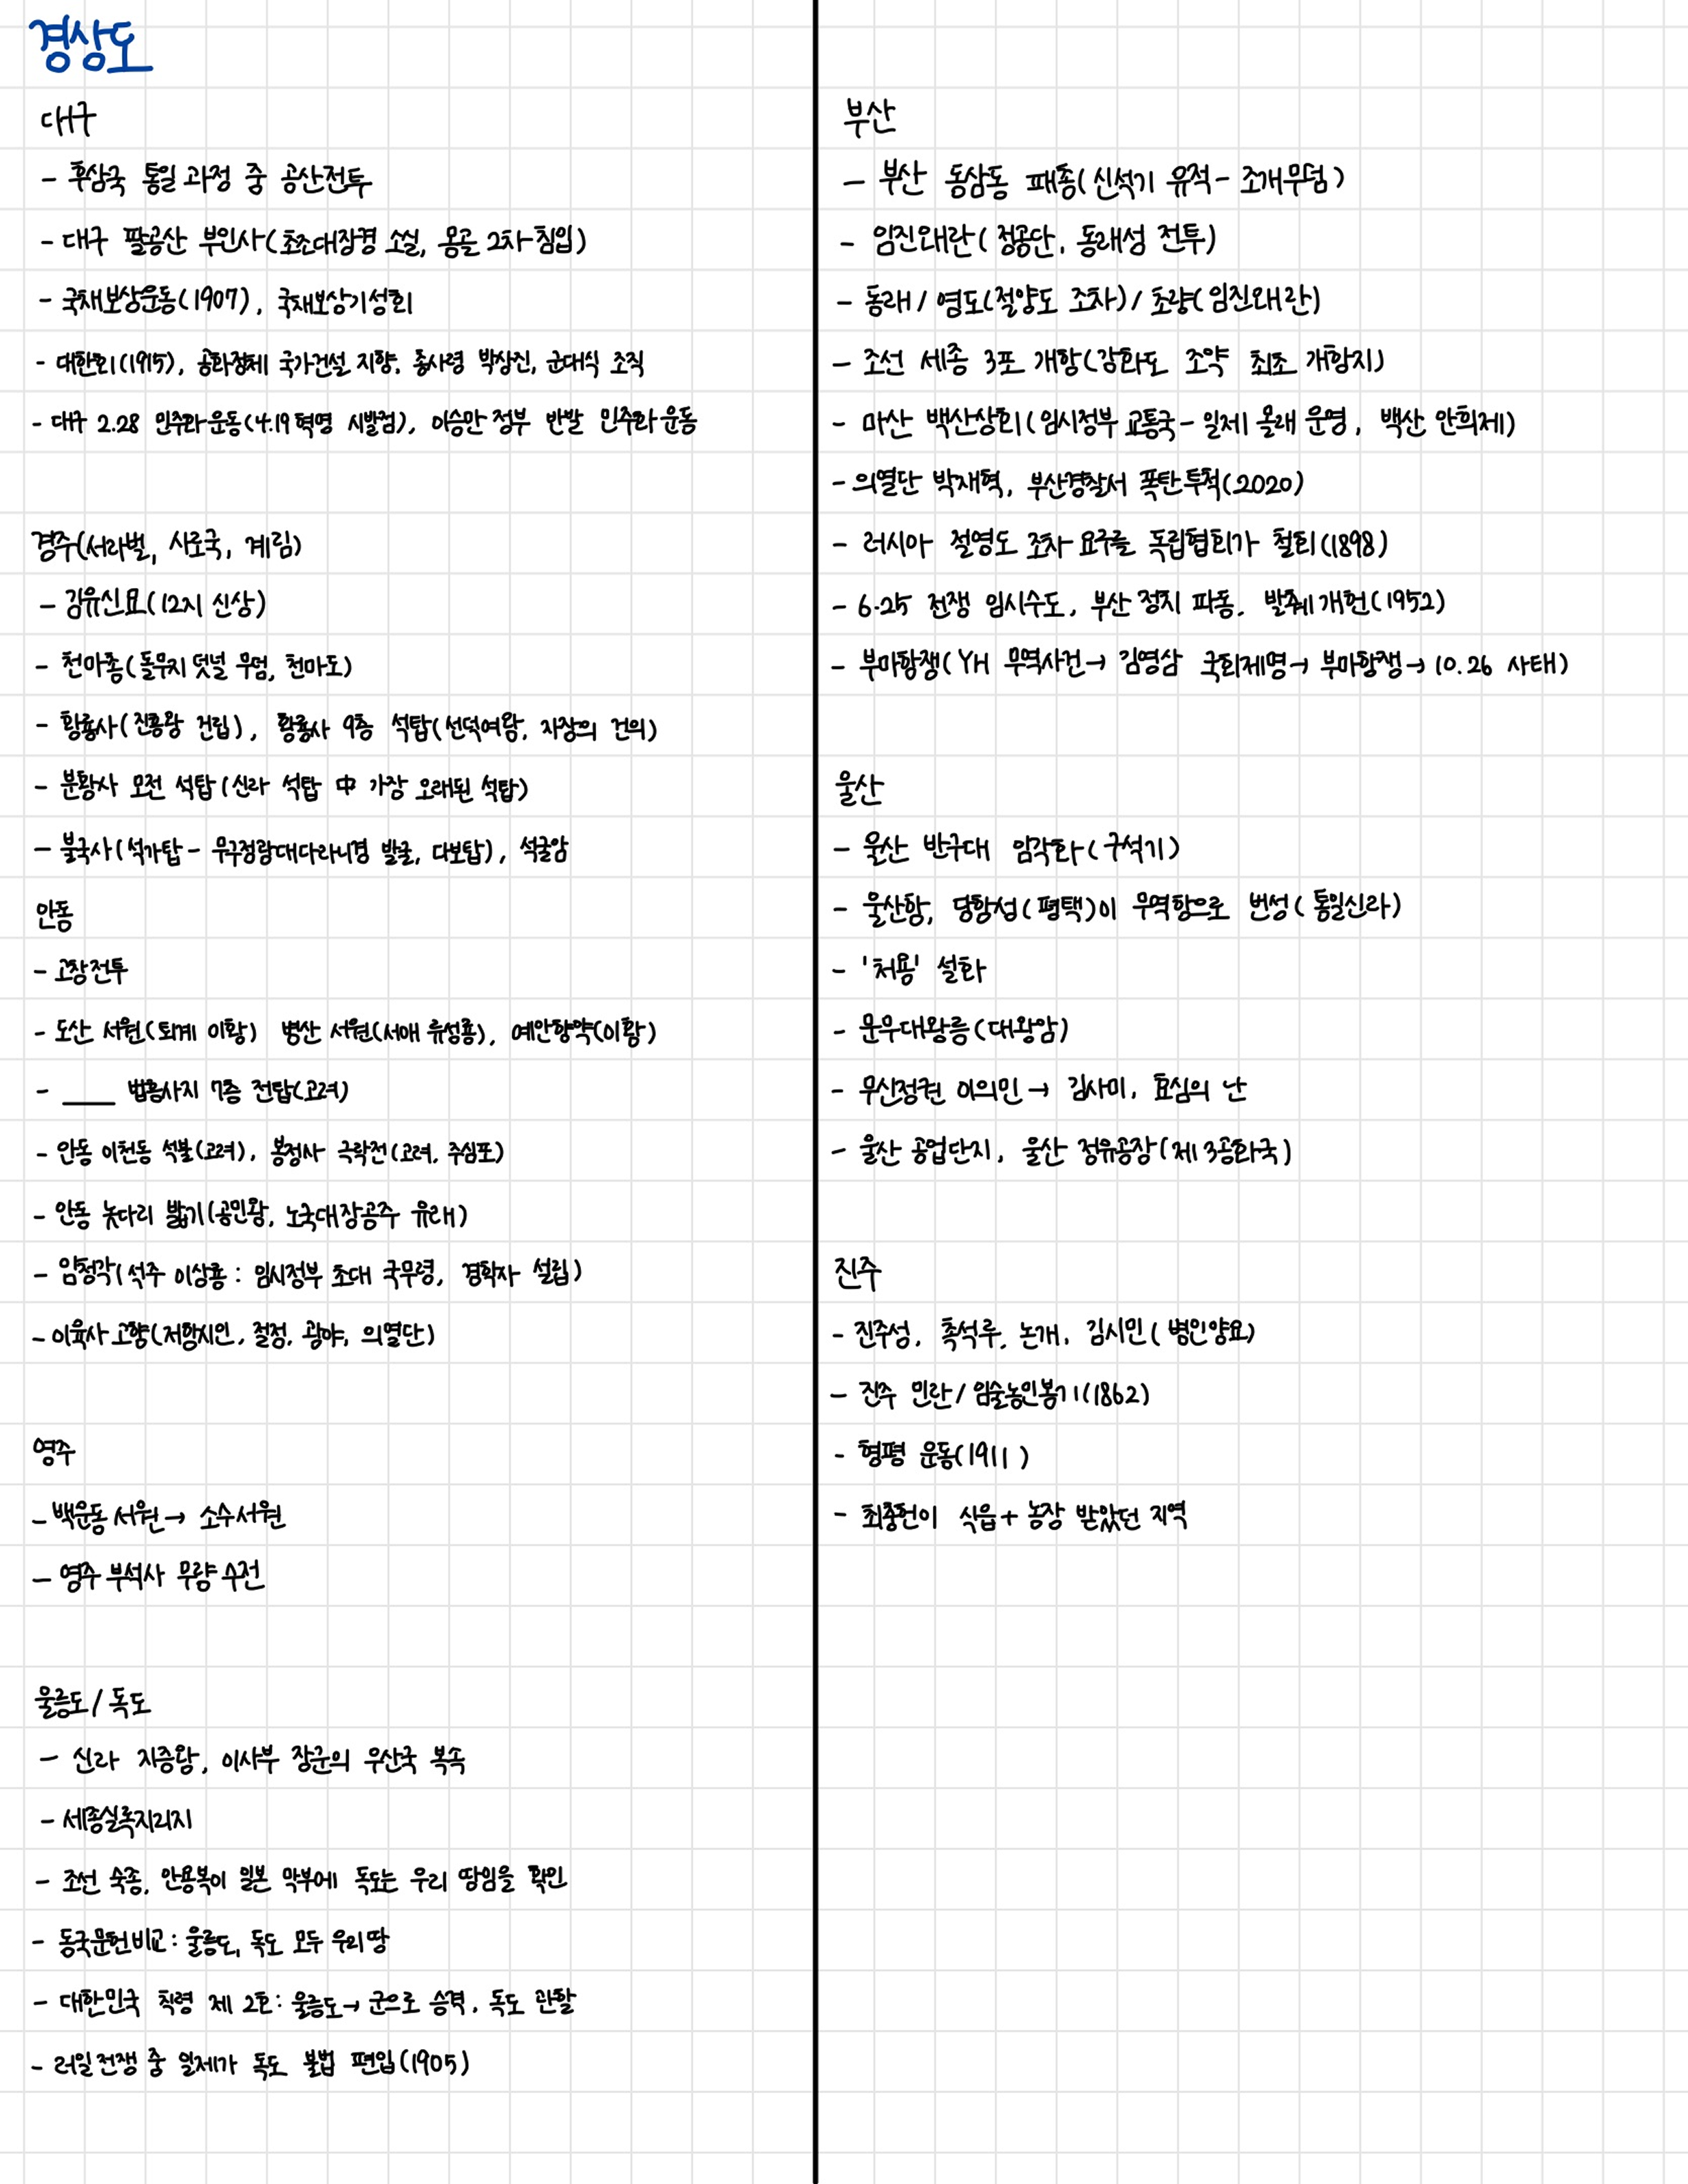 경상도
대구
- 후삼국 통일 과정 중 공산전투
- 대구 팔공산 부인사(초조대장경 소실, 몽골 2차 침입)
- 국채보상운동(1907), 국채보상기성회
- 대한광복회(1915), 공화정체 국가건설 지향, 총사령 박상진, 군대식 조직
- 대구 2.28 민주화운동(4.19 혁명 시발점), 이승만 정부 반발 민주화 운동
경주(서라벌, 사로국, 계림)
- 김유신묘(12지 신상)
- 천마총(돌무지 덧널 무덤, 천마도)
- 황룡사(진흥왕 건립), 황룡사 9층 석탑(선덕여왕, 자장의 건의)
- 분황사 모전 석탑(신라 석탑 中 가장 오래된 석탑)
- 불국사(석가탑 - 무구정광대다라니경 발굴, 다보탑), 석굴암
안동
- 고창전투
- 도산 서원(퇴계 이황) 병산 서원(서애 류성룡), 예안향약(이황)
- ____ 법흥사지 7층 전탑(고려)
- 안동 이천동 석불(고려), 봉정사 극락전(고려, 주심포)
- 안동 놋다리 밟기(공민왕, 노국대장공주 유래)
- 임청각(석주 이상룡 : 임시정부 초대 국무령, 경학사 설립)
- 이육사 고향(저항시인, 절정, 광야, 의열단)
영주
- 백운동 서원 → 소수서원
- 영주 부석사 무량수전
울릉도 / 독도
- 신라 지증왕, 이사부 장군의 우산국 복속
- 세종실록지리지
- 조선 숙종, 안용복이 일본 막부에 독도는 우리 땅임을 확인
- 동국문헌비고 : 울릉도, 독도 모두 우리 땅
- 대한민국 칙령 제 2호 : 울릉도 → 군으로 승격, 독도 관할
- 러일 전쟁 중 일제가 독도 불법 편입(1905)
부산
- 부산 동삼동 패총(신석기 유적 - 조개무덤)
- 임진왜란(정공단, 동래성 전투)
- 동래 / 영도(절양도 조차) / 초량(임진왜란)
- 조선 세종 3포 개항(강화도 조약 최초 개항지)
- 마산 백산상회(임시정부 교통국 - 일제 몰래 운영, 백산 안희제)
- 의열단 박재혁, 부산경찰서 폭탄투척(2020)
- 러시아 절영도 조차 요구를 독립협회가 철회(1898)
- 6·25 전쟁 임시수도, 부산 정치 파동, 발췌개헌(1952)
- 부마항쟁(YH 무역사건 → 김영삼 국회제명 → 부마항쟁 → 10.26 사태)
울산
- 울산 반구대 암각화(구석기)
- 울산항, 당항성(평택)이 무역항으로 번성(통일신라)
- '처용' 설화
- 문무대왕릉(대왕암)
- 무신정권 이의민 → 김사미, 효심의 난
- 울산 공업단지, 울산 정유공장(제 3공화국)
진주
- 진주성, 촉석루, 논개, 김시민(병인양요)
- 진주 민란 / 임술농민봉기(1862)
- 형평 운동(1911)
- 최충헌이 식읍 + 농장 받았던 지역